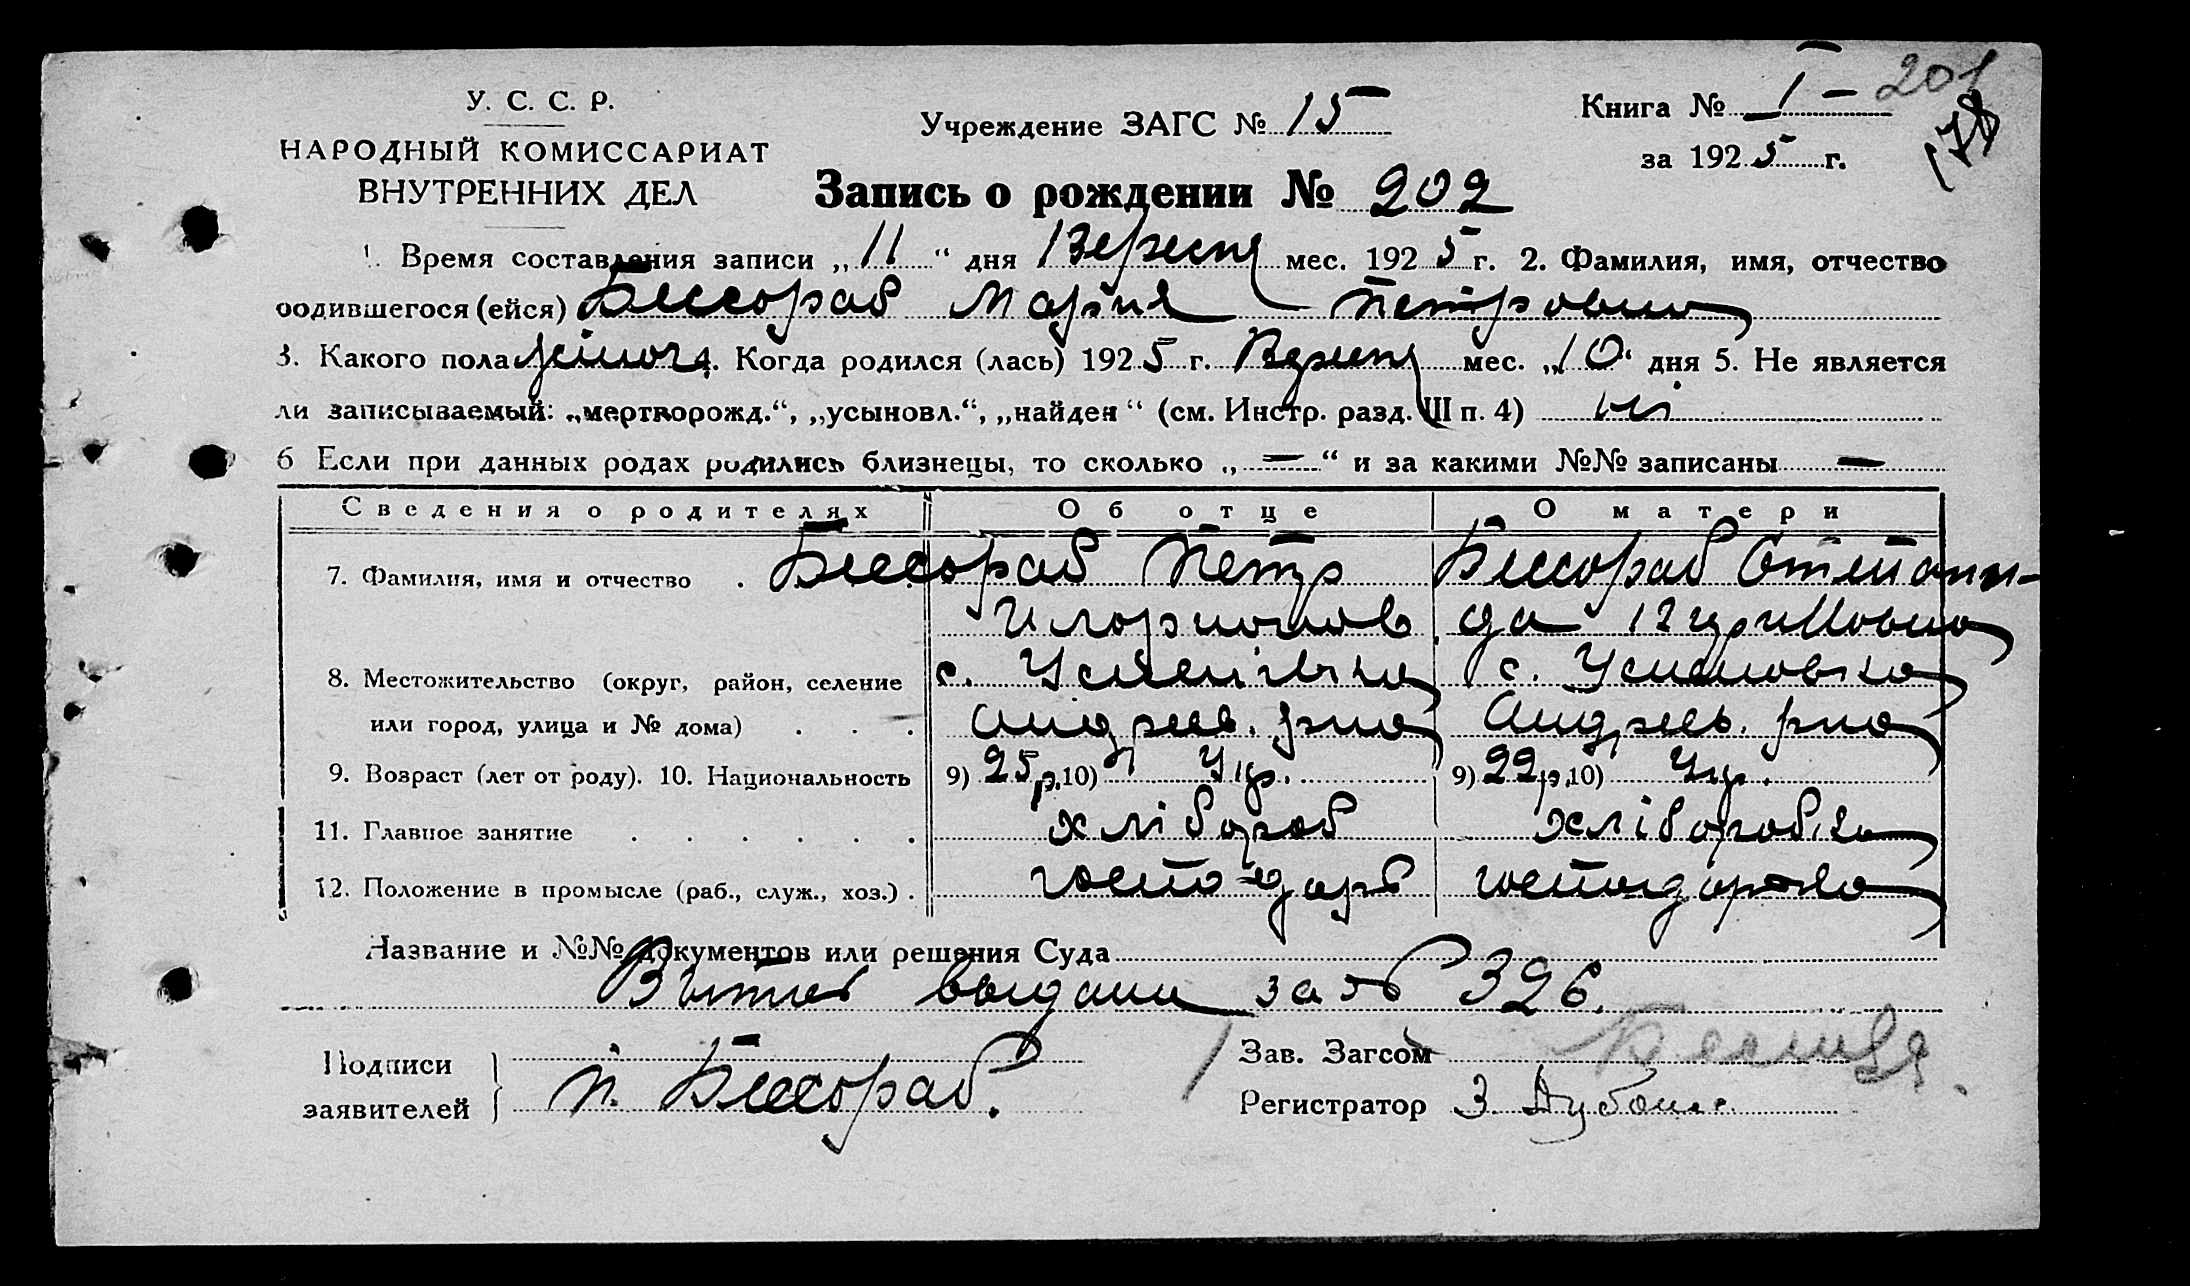 У. С. С. Р.
НАРОДНЫЙ КОМИССАРИАТ
ВНУТРЕННИХ ДЕЛ
Учреждение ЗАГС № 15
Книга № I – 201
за 1925 г.
178
Запись о рождении № 202
1. Время составления записи „ 11 “ дня Вересня мес. 1925 г. 2. Фамилия, имя, отчество
родившегося (ейся) Бессораб Марія Петровна
3. Какого пола жіноч 4. Когда родился (лась) 1925 г. Вересня мес. „10“ дня 5. Не является
ли записываемый: „мертворожд.“, „усыновл.“, „найден“ (см. Инстр. разд. III п. 4) ні
6 Если при данных родах родились близнецы, то сколько „ — “ и за какими №№ записаны —
Сведения о родителях Об отце О матери
7. Фамилия, имя и отчество . Бессораб Петр Бессораб Степани-
Иларионов да
8. Местожительство (округ, район, селение с. Успенівка с. Успеновка
или город, улица и № дома) . . . Андреев. рна Андреев. рна
9. Возраст (лет от роду). 10. Национальность 9) 25 р. 10) Укр. 9) 22 р. 10) Укр.
11. Главное занятие . . . . . . хлібороб хліборобка
12. Положение в промысле (раб., служ., хоз.) . господарь господарка
Название и №№ документов или решения Суда
Витяг выдани за № 326.
Подписи
заявителей
П. Бессораб.
Зав. Загсом
Регистратор З.